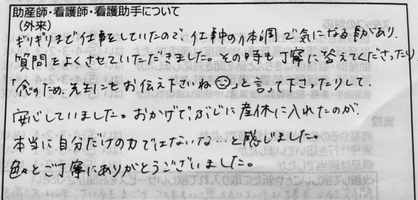 助産師・看護師・看護助手について
(外来)
ギリギリまで仕事をしていたので、仕事中の体調で気になる事があり、
質問をよくさせていただきました。その時も丁寧に答えてくださったり
「念のため、先生にもお伝え下さいね☺」と言って下さったりして、
安心していました。おかげで、ぶじに産休に入れたのが、
本当に自分だけの力ではないな…と感じました。
色々とご丁寧にありがとうございました。